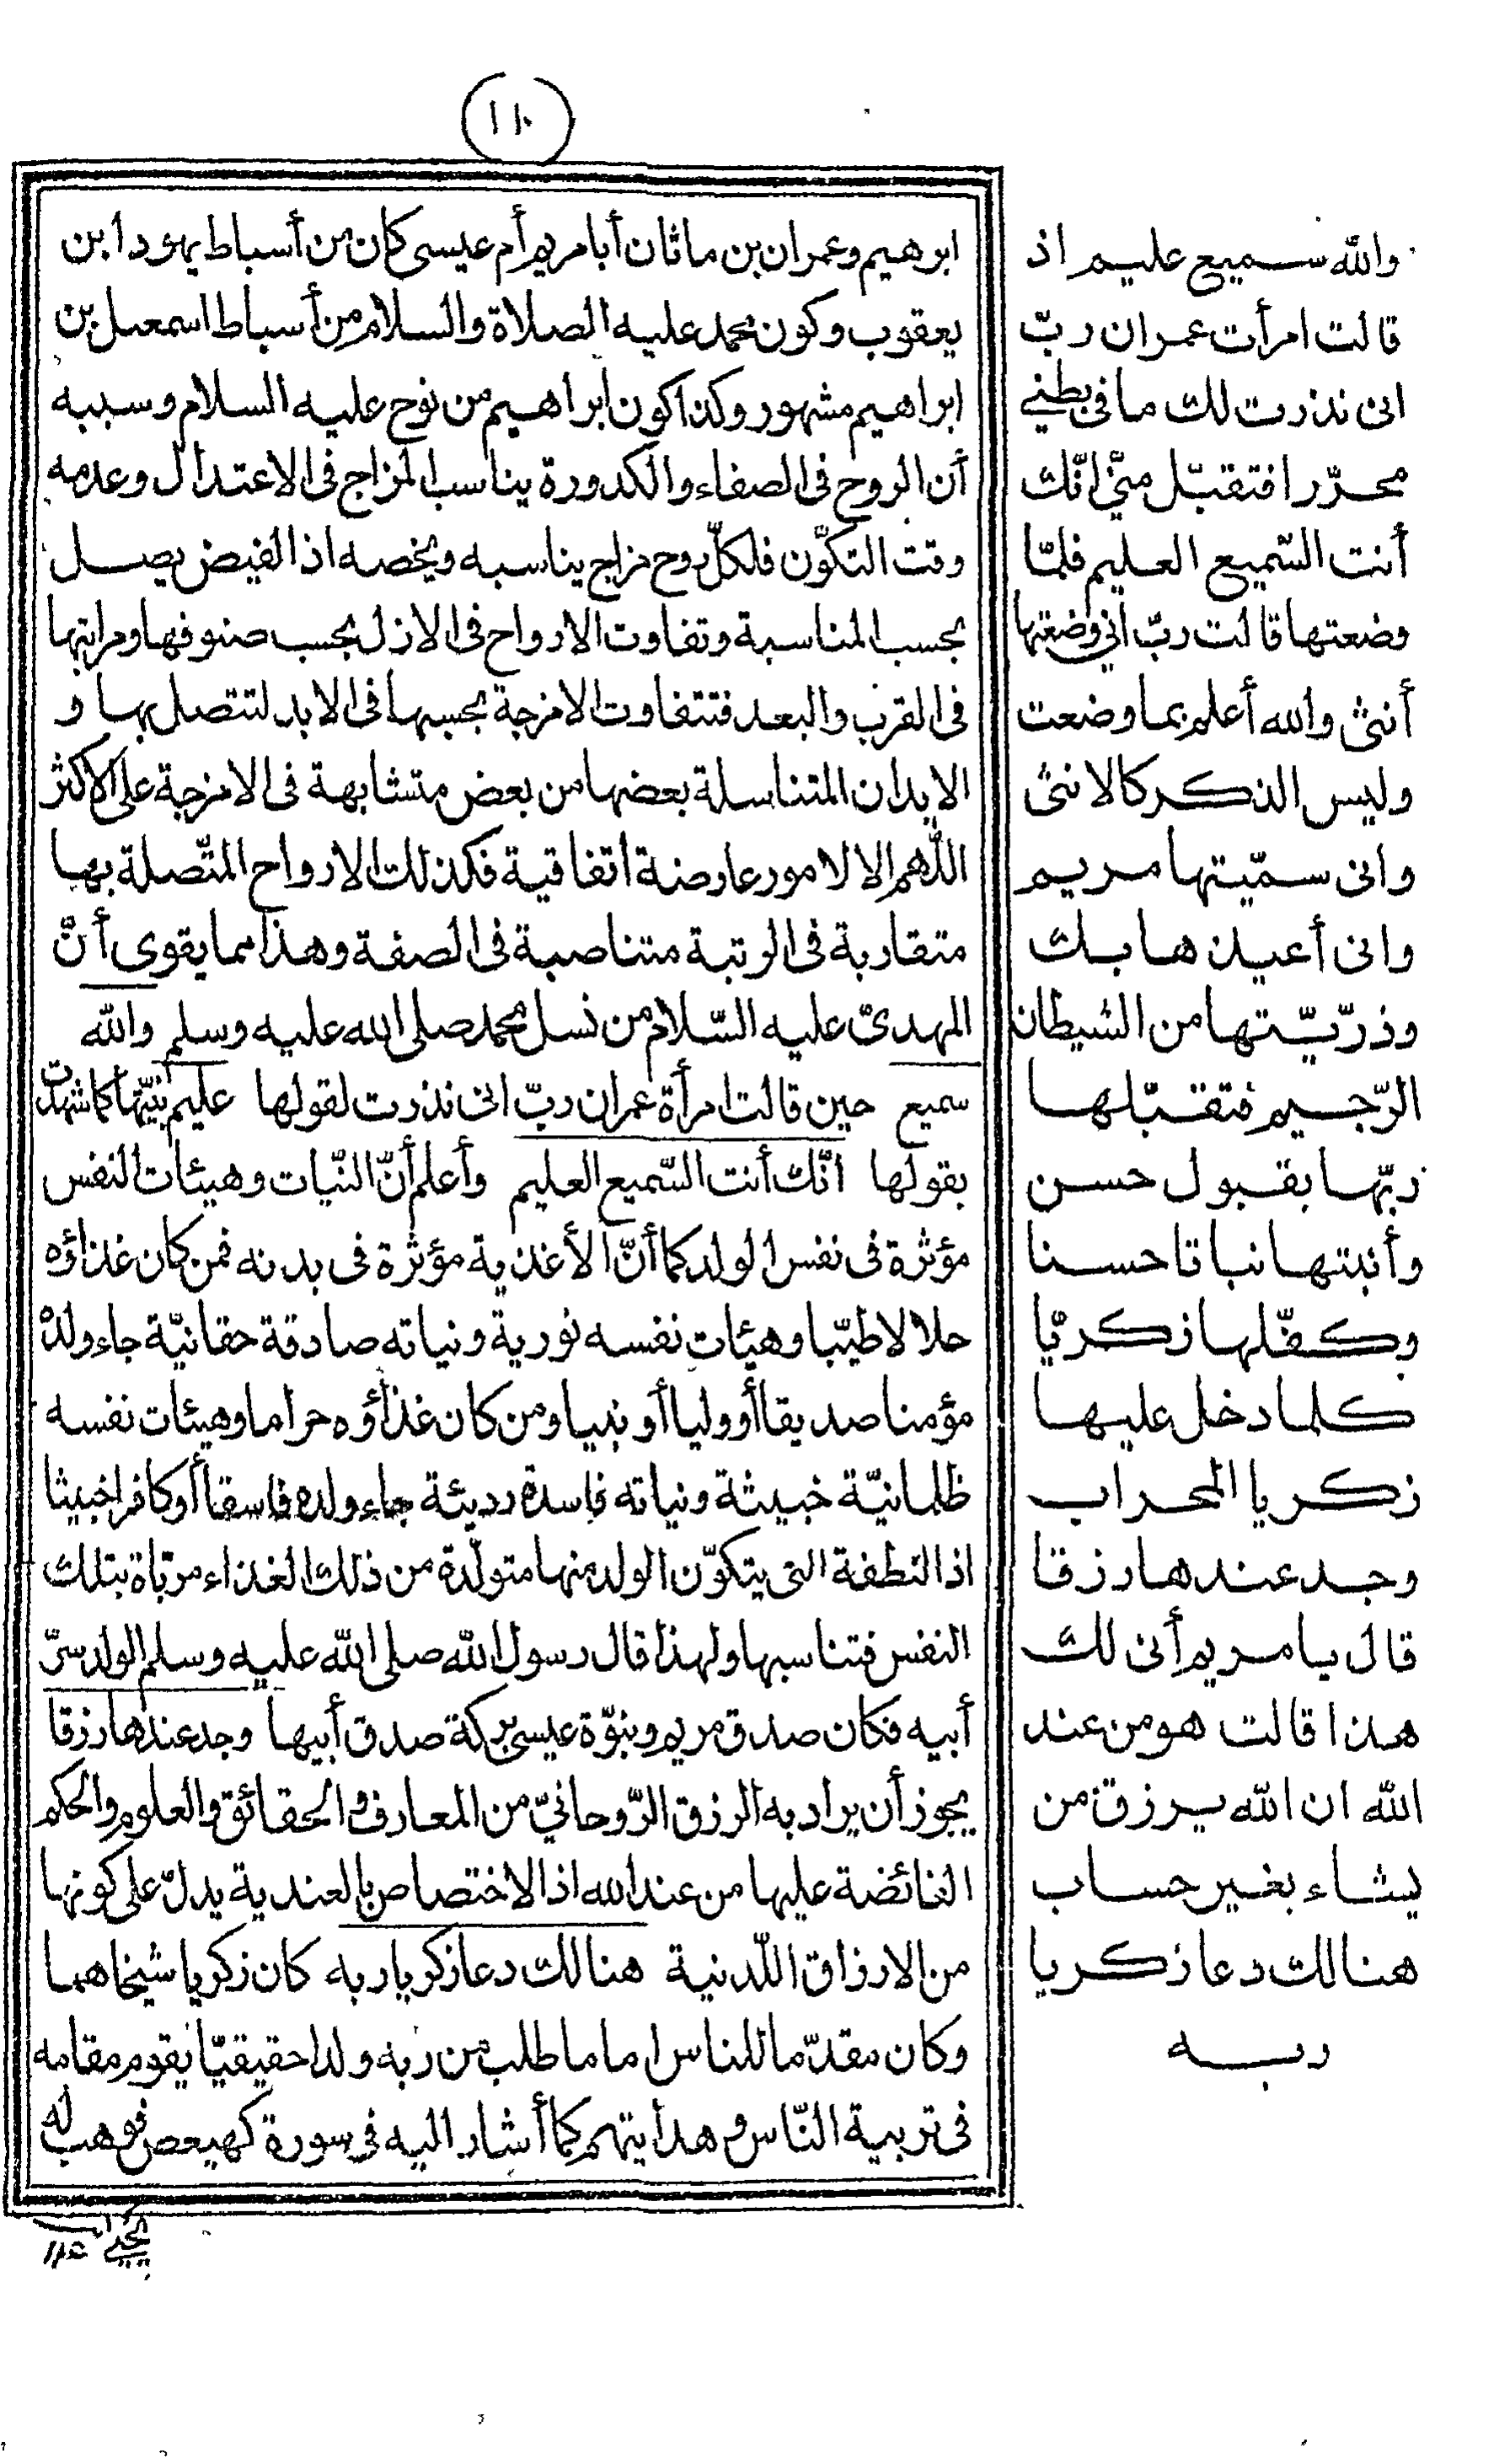 (١١٠)
والله سميع عليم اذ
قالت امرأت عمران ربّ
انى نذرت لك ما فى بطني
محرّرا فتقبّل منّي انّك
أنت السّميع العليم فلمّا
وضعتها قالت ربّ اني وضعتها
أنثى والله أعلم بما وضعت
وليس الذكر كالانثى
وانى سمّيتها مريم
وانى أعيذها بك
وذرّيّتها من الشيطان
الرّجيم فتقبّلها
ربّها بقبول حسن
وأنبتها نباتا حسنا
وكفّلها زكريّا
كلما دخل عليها
زكريا المحراب
وجد عندها رزقا
قال يا مريم أنى لك
هذا قالت هو من عند
الله ان الله يرزق من
يشاء بغير حساب
هنالك دعا زكريا
ربه
ابرهيم وعمران بن ماثان أبا مريم أم عيسى كان من أسباط يهودا بن
يعقوب وكون محمد عليه الصلاة والسلام من أسباط اسمعيل بن
ابراهيم مشهور وكذا كون ابراهيم من نوح عليه السلام وسببه
أن الروح فى الصفاء والكدورة يناسب المزاج فى الاعتدال وعدمه
وقت التكوّن فلكلّ روح مزاج يناسبه ويخصه اذ الفيض يصل
بحسب المناسبة وتفاوت الارواح فى الازل بحسب صنوفها ومراتبها
فى القرب والبعد فتتفاوت الامزجة بحسبها فى الابد لتتصل بها و
الابدان المتناسلة بعضها من بعض متشابهة فى الامزجة على الاكثر
اللّهم الا لامور عارضة اتفاقية فكذلك الارواح المتّصلة بها
متقاربة فى الرتبة متناصبة فى الصفة وهذا مما يقوى أنّ
المهدىّ عليه السّلام من نسل محمد صلى الله عليه وسلم والله
سميع حين قالت امرأة عمران ربّ انى نذرت لقولها عليم بنيّتها كما شهدت
بقولها انّك أنت السّميع العليم وأعلم أنّ النّيات وهيئات النفس
مؤثرة فى نفس الولد كما أنّ الأغذية مؤثرة فى بدنه فمن كان غذاؤه
حلالا طيّبا وهيئات نفسه نورية ونياته صادقة حقانيّة جاء ولده
مؤمنا صديقا أو وليا أو نبيا ومن كان غذاؤه حراما وهيئات نفسه
ظلمانيّة خبيثة ونياته فاسدة رديئة جاء ولده فاسقا أو كافرا خبيثا
اذ النطفة التى يتكوّن الولد منها متولّدة من ذلك الغذاء مربّاة بتلك
النفس فتناسبها ولهذا قال رسول الله صلى الله عليه وسلم الولد سرّ
أبيه فكان صدق مريم ونبوّة عيسى بركة صدق أبيها وجد عندها رزقا
يجوز أن يراد به الرزق الرّوحانيّ من المعارف والحقائق والعلوم والحكم
الفائضة عليها من عند الله اذ الاختصاص بالعندية يدلّ على كونها
من الارزاق اللّدنية هنالك دعا زكريا ربه كان زكريا شيخا هما
وكان مقدّما للناس اماما طلب من ربه ولدا حقيقيّا يقوم مقامه
فى تربية النّاس وهدايتهم كما أشار اليه فى سورة كهيعص فوهب له